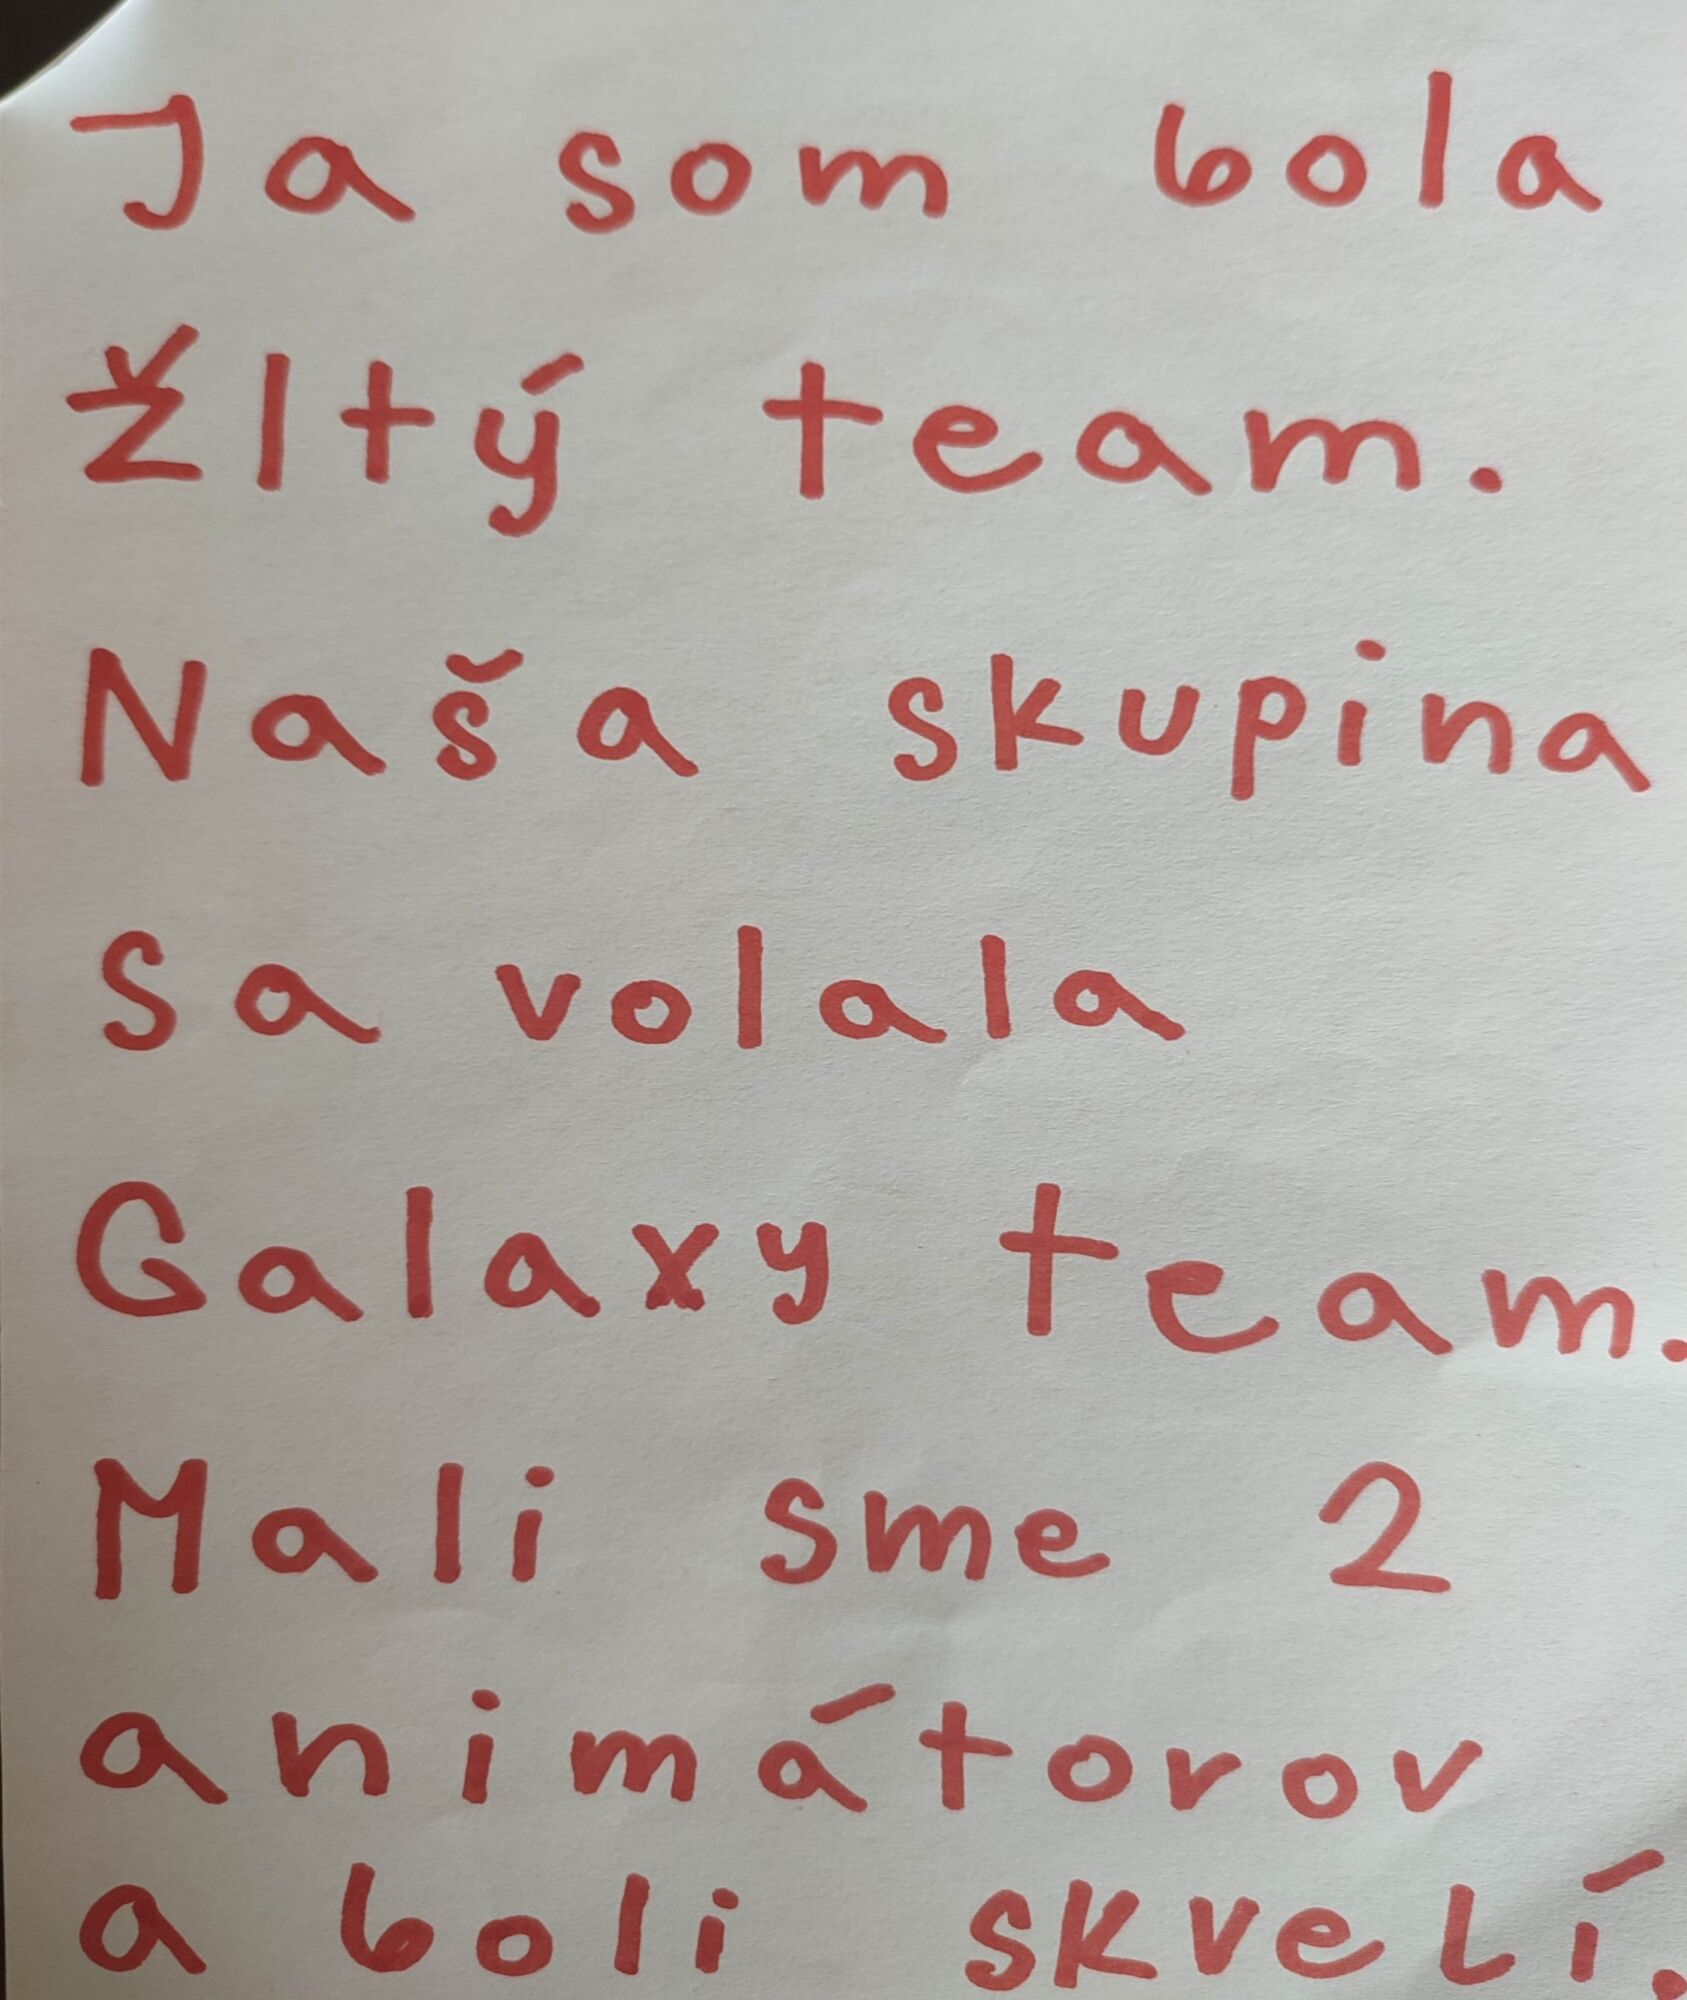 Ja som bola
žltý team.
Naša skupina
sa volala
Galaxy team.
Mali sme 2
animátorov
a boli skvelí.